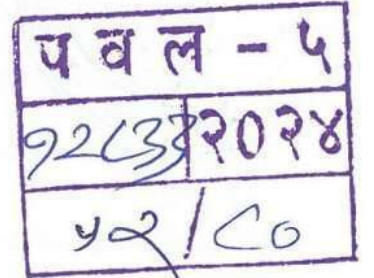 प व ल - ५
१२८३३ २०२४
५२ / ८०